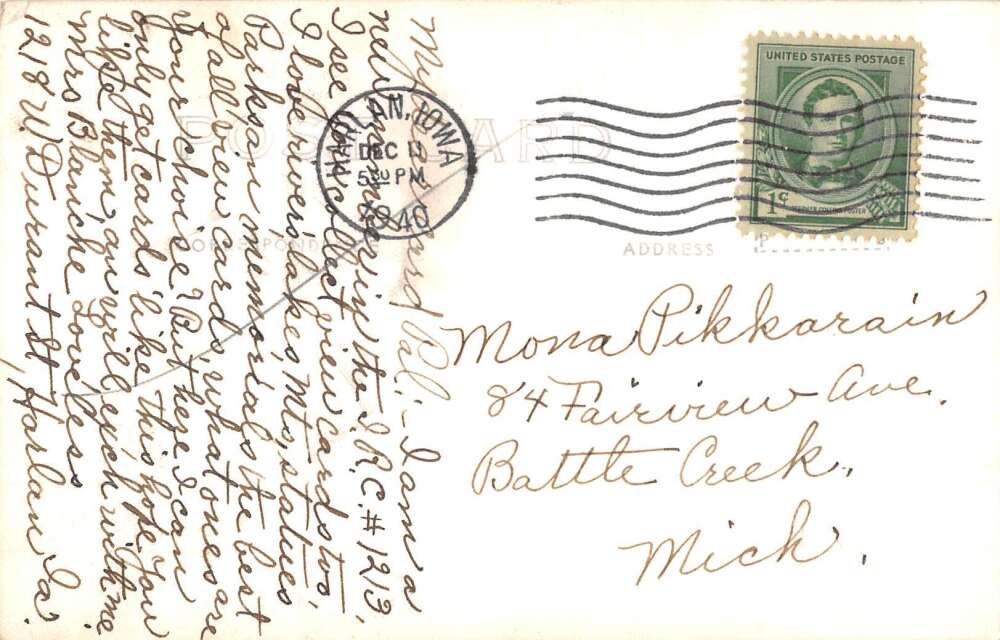 POST CARD
CORRESPONDENCE
ADDRESS
UNITED STATES POSTAGE
1¢
STEPHEN COLLINS FOSTER
HARLAN, IOWA
DEC 11
5 30 PM
1940
My Card Pal:- I am a
new name in the I.R.C.#1213,
I see U collect view cards too,
I love rivers, lakes, Mts, statues
Parks or memorials the best
of all view cards, what ones are
your choise? But here I can
only get cards like this hope you
like them, an will exch with me
Mrs Blanche Loveless
1218 W. Durant St, Harlan Ia.
Mona Pikkarain
84 Fairview Ave.
Battle Creek,
Mich.